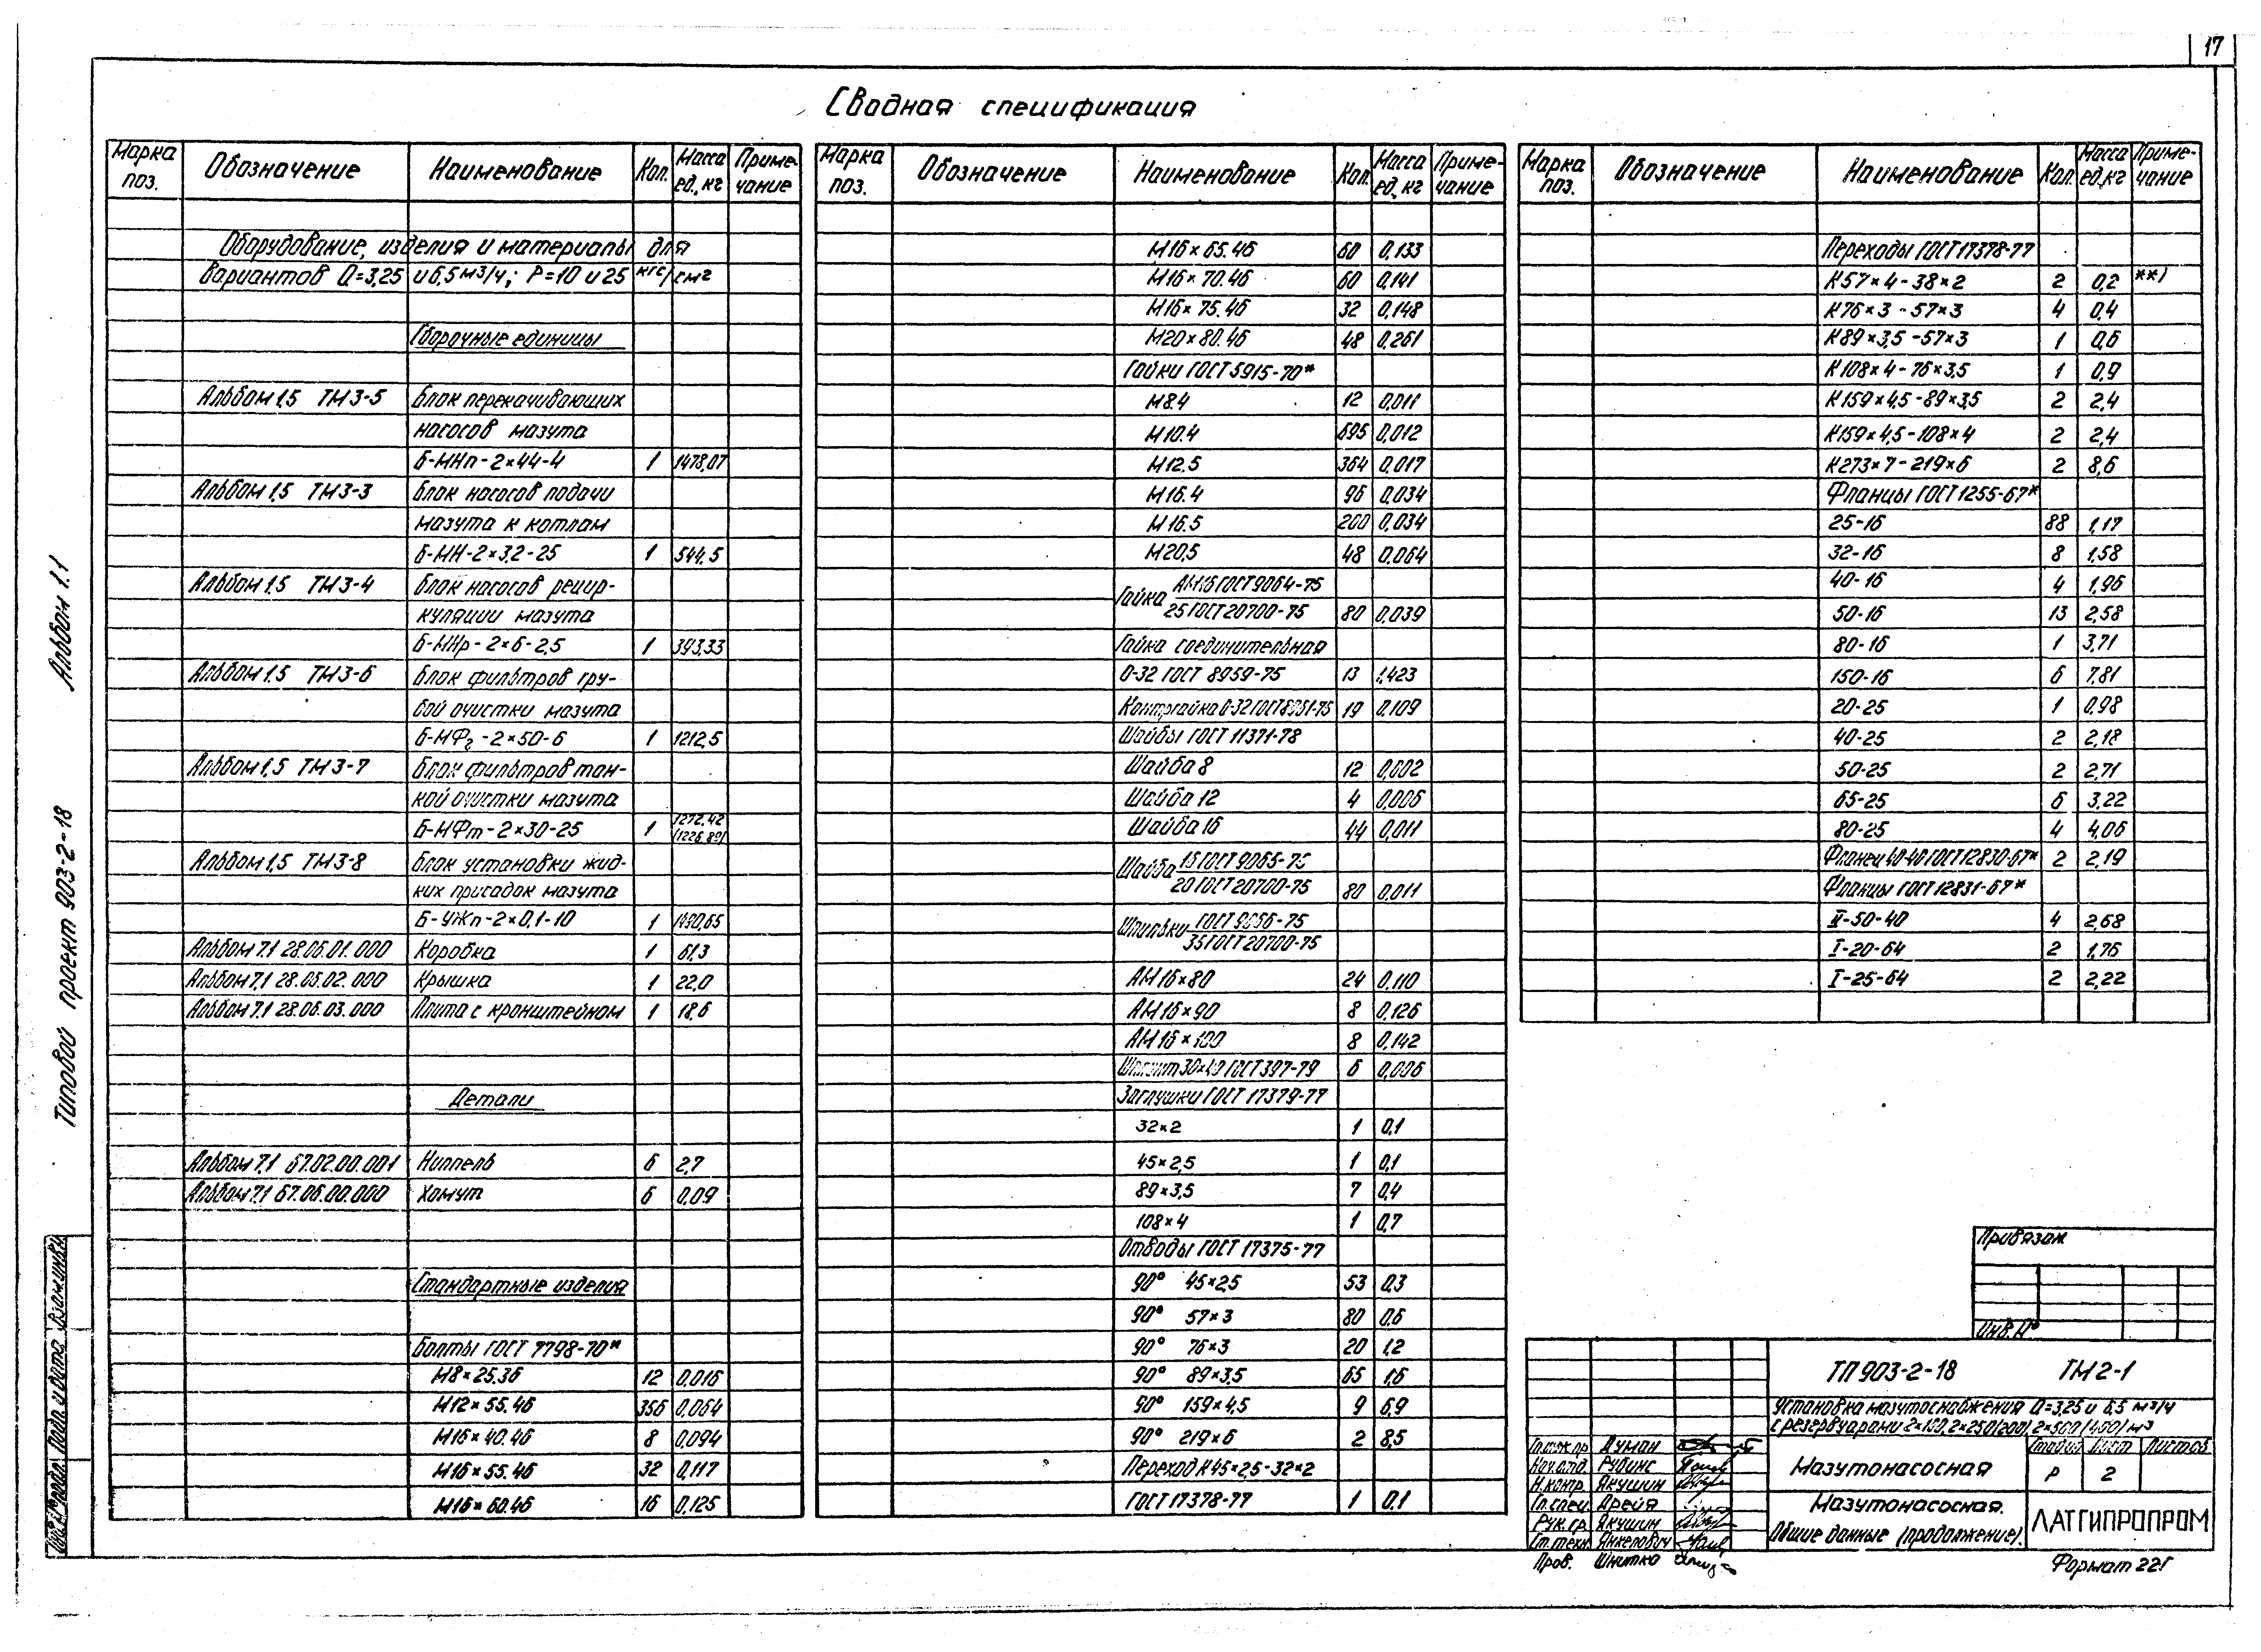 17
Сводная спецификация
Марка поз. Обозначение Наименование Кол. Масса ед., кг Приме-чание
Оборудование, изделия и материалы для
вариантов Q=3,25 и 6,5 м3/ч; Р=10 и 25 кгс/см2
Сборочные единицы
Альбом 1,5 ТМ3-5 Блок перекачивающих
насосов мазута
Б-МНп-2×44-4 1 1478,07
Альбом 1,5 ТМ3-3 Блок насосов подачи
мазута к котлам
Б-МН-2×3,2-25 1 544,5
Альбом 1,5 ТМ3-4 Блок насосов рецир-
куляции мазута
Б-МНр-2×6-2,5 1 393,33
Альбом 1,5 ТМ3-6 Блок фильтров гру-
бой очистки мазута
Б-МФг-2×50-6 1 1212,5
Альбом 1,5 ТМ3-7 Блок фильтров тон-
кой очистки мазута
Б-МФт-2×30-25 1 1272,42
(1226,89)
Альбом 1,5 ТМ3-8 Блок установки жид-
ких присадок мазута
Б-УЖп-2×0,1-10 1 1490,65
Альбом 7.1 28.06.01.000 Коробка 1 61,3
Альбом 7.1 28.06.02.000 Крышка 1 22,0
Альбом 7.1 28.06.03.000 Плита с кронштейном 1 18,6
Детали
Альбом 7.1 67.02.00.001 Ниппель 6 2,7
Альбом 7.1 67.06.00.000 Хомут 6 0,09
Стандартные изделия
Болты ГОСТ 7798-70*
М8×25.36 12 0,016
М12×55.46 356 0,064
М16×40.46 8 0,094
М16×55.46 32 0,117
М16×60.46 16 0,125
Марка поз. Обозначение Наименование Кол. Масса ед., кг Приме-чание
М16×65.46 60 0,133
М16×70.46 60 0,141
М16×75.46 32 0,148
М20×80.46 48 0,261
Гайки ГОСТ 5915-70*
М8.4 12 0,011
М10.4 695 0,012
М12.5 364 0,017
М16.4 96 0,034
М16.5 200 0,034
М20.5 48 0,064
Гайка АМ16 ГОСТ 9064-75
25 ГОСТ 20700-75 80 0,039
Гайка соединительная
О-32 ГОСТ 8959-75 13 1,423
Контргайка О-32 ГОСТ 8961-75 19 0,109
Шайбы ГОСТ 11371-78
Шайба 8 12 0,002
Шайба 12 4 0,006
Шайба 16 44 0,011
Шайба 16 ГОСТ 9065-75
20 ГОСТ 20700-75 80 0,011
Шпильки ГОСТ 9066-75
35 ГОСТ 20700-75
АМ16×80 24 0,110
АМ16×90 8 0,126
АМ16×100 8 0,142
Шплинт 30×40 ГОСТ 397-79 6 0,006
Заглушки ГОСТ 17379-77
32×2 1 0,1
45×2,5 1 0,1
89×3,5 7 0,4
108×4 1 0,7
Отводы ГОСТ 17375-77
90° 45×2,5 53 0,3
90° 57×3 80 0,6
90° 76×3 20 1,2
90° 89×3,5 65 1,6
90° 159×4,5 9 6,9
90° 219×6 2 8,5
Переход К45×2,5-32×2
ГОСТ 17378-77 1 0,1
Марка поз. Обозначение Наименование Кол. Масса ед., кг Приме-чание
Переходы ГОСТ 17378-77
К57×4-38×2 2 0,2 **)
К76×3-57×3 4 0,4
К89×3,5-57×3 1 0,6
К108×4-76×3,5 1 0,9
К159×4,5-89×3,5 2 2,4
К159×4,5-108×4 2 2,4
К273×7-219×6 2 8,6
Фланцы ГОСТ 1255-67*
25-16 88 1,17
32-16 8 1,58
40-16 4 1,96
50-16 13 2,58
80-16 1 3,71
150-16 6 7,81
20-25 1 0,98
40-25 2 2,18
50-25 2 2,71
65-25 6 3,22
80-25 4 4,06
Фланец 40-40 ГОСТ 12830-67* 2 2,19
Фланцы ГОСТ 12831-67*
II-50-40 4 2,68
I-20-64 2 1,76
I-25-64 2 2,22
Привязан
Инв.№
ТП 903-2-18 ТМ2-1
Установка мазутоснабжения Q=3,25 и 6,5 м3/ч
с резервуарами 2×100, 2×250(200), 2×500(400) м3
Гл.инж.пр. Думан
Нач.отд. Рубинс
Н.контр. Якушин
Гл.спец. Дрейя
Рук.гр. Якушин
Ст.техн. Янкелович
Пров. Шнитко
Мазутонасосная
Стадия Лист Листов
Р 2
Мазутонасосная.
Общие данные (продолжение).
ЛАТГИПРОПРОМ
Формат 22Г
Типовой проект 903-2-18 Альбом 1.1
Инв.№ подл. Подп. и дата Взам.инв.№